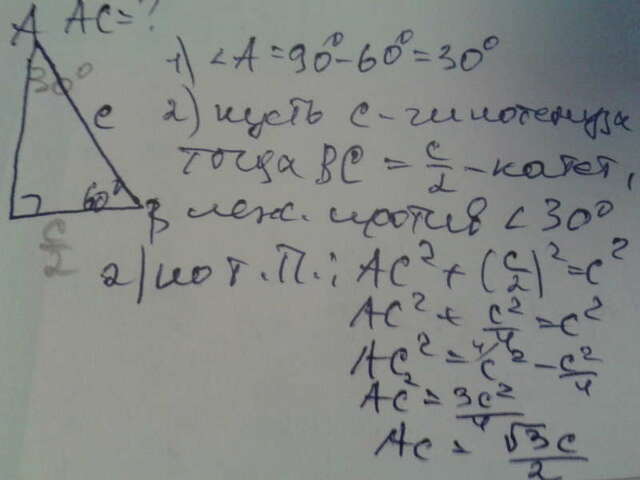 A AC=?
30°
c
60°
B
c/2
1) <A = 90° - 60° = 30°
2) пусть c - гипотенуза
тогда BC = c/2 - катет,
леж. против < 30°
2) по т. П.: AC² + (c/2)² = c²
AC² + c²/4 = c²
AC² = ⁴/c² - c²/4
AC² = 3c²/4
AC = √3c/2